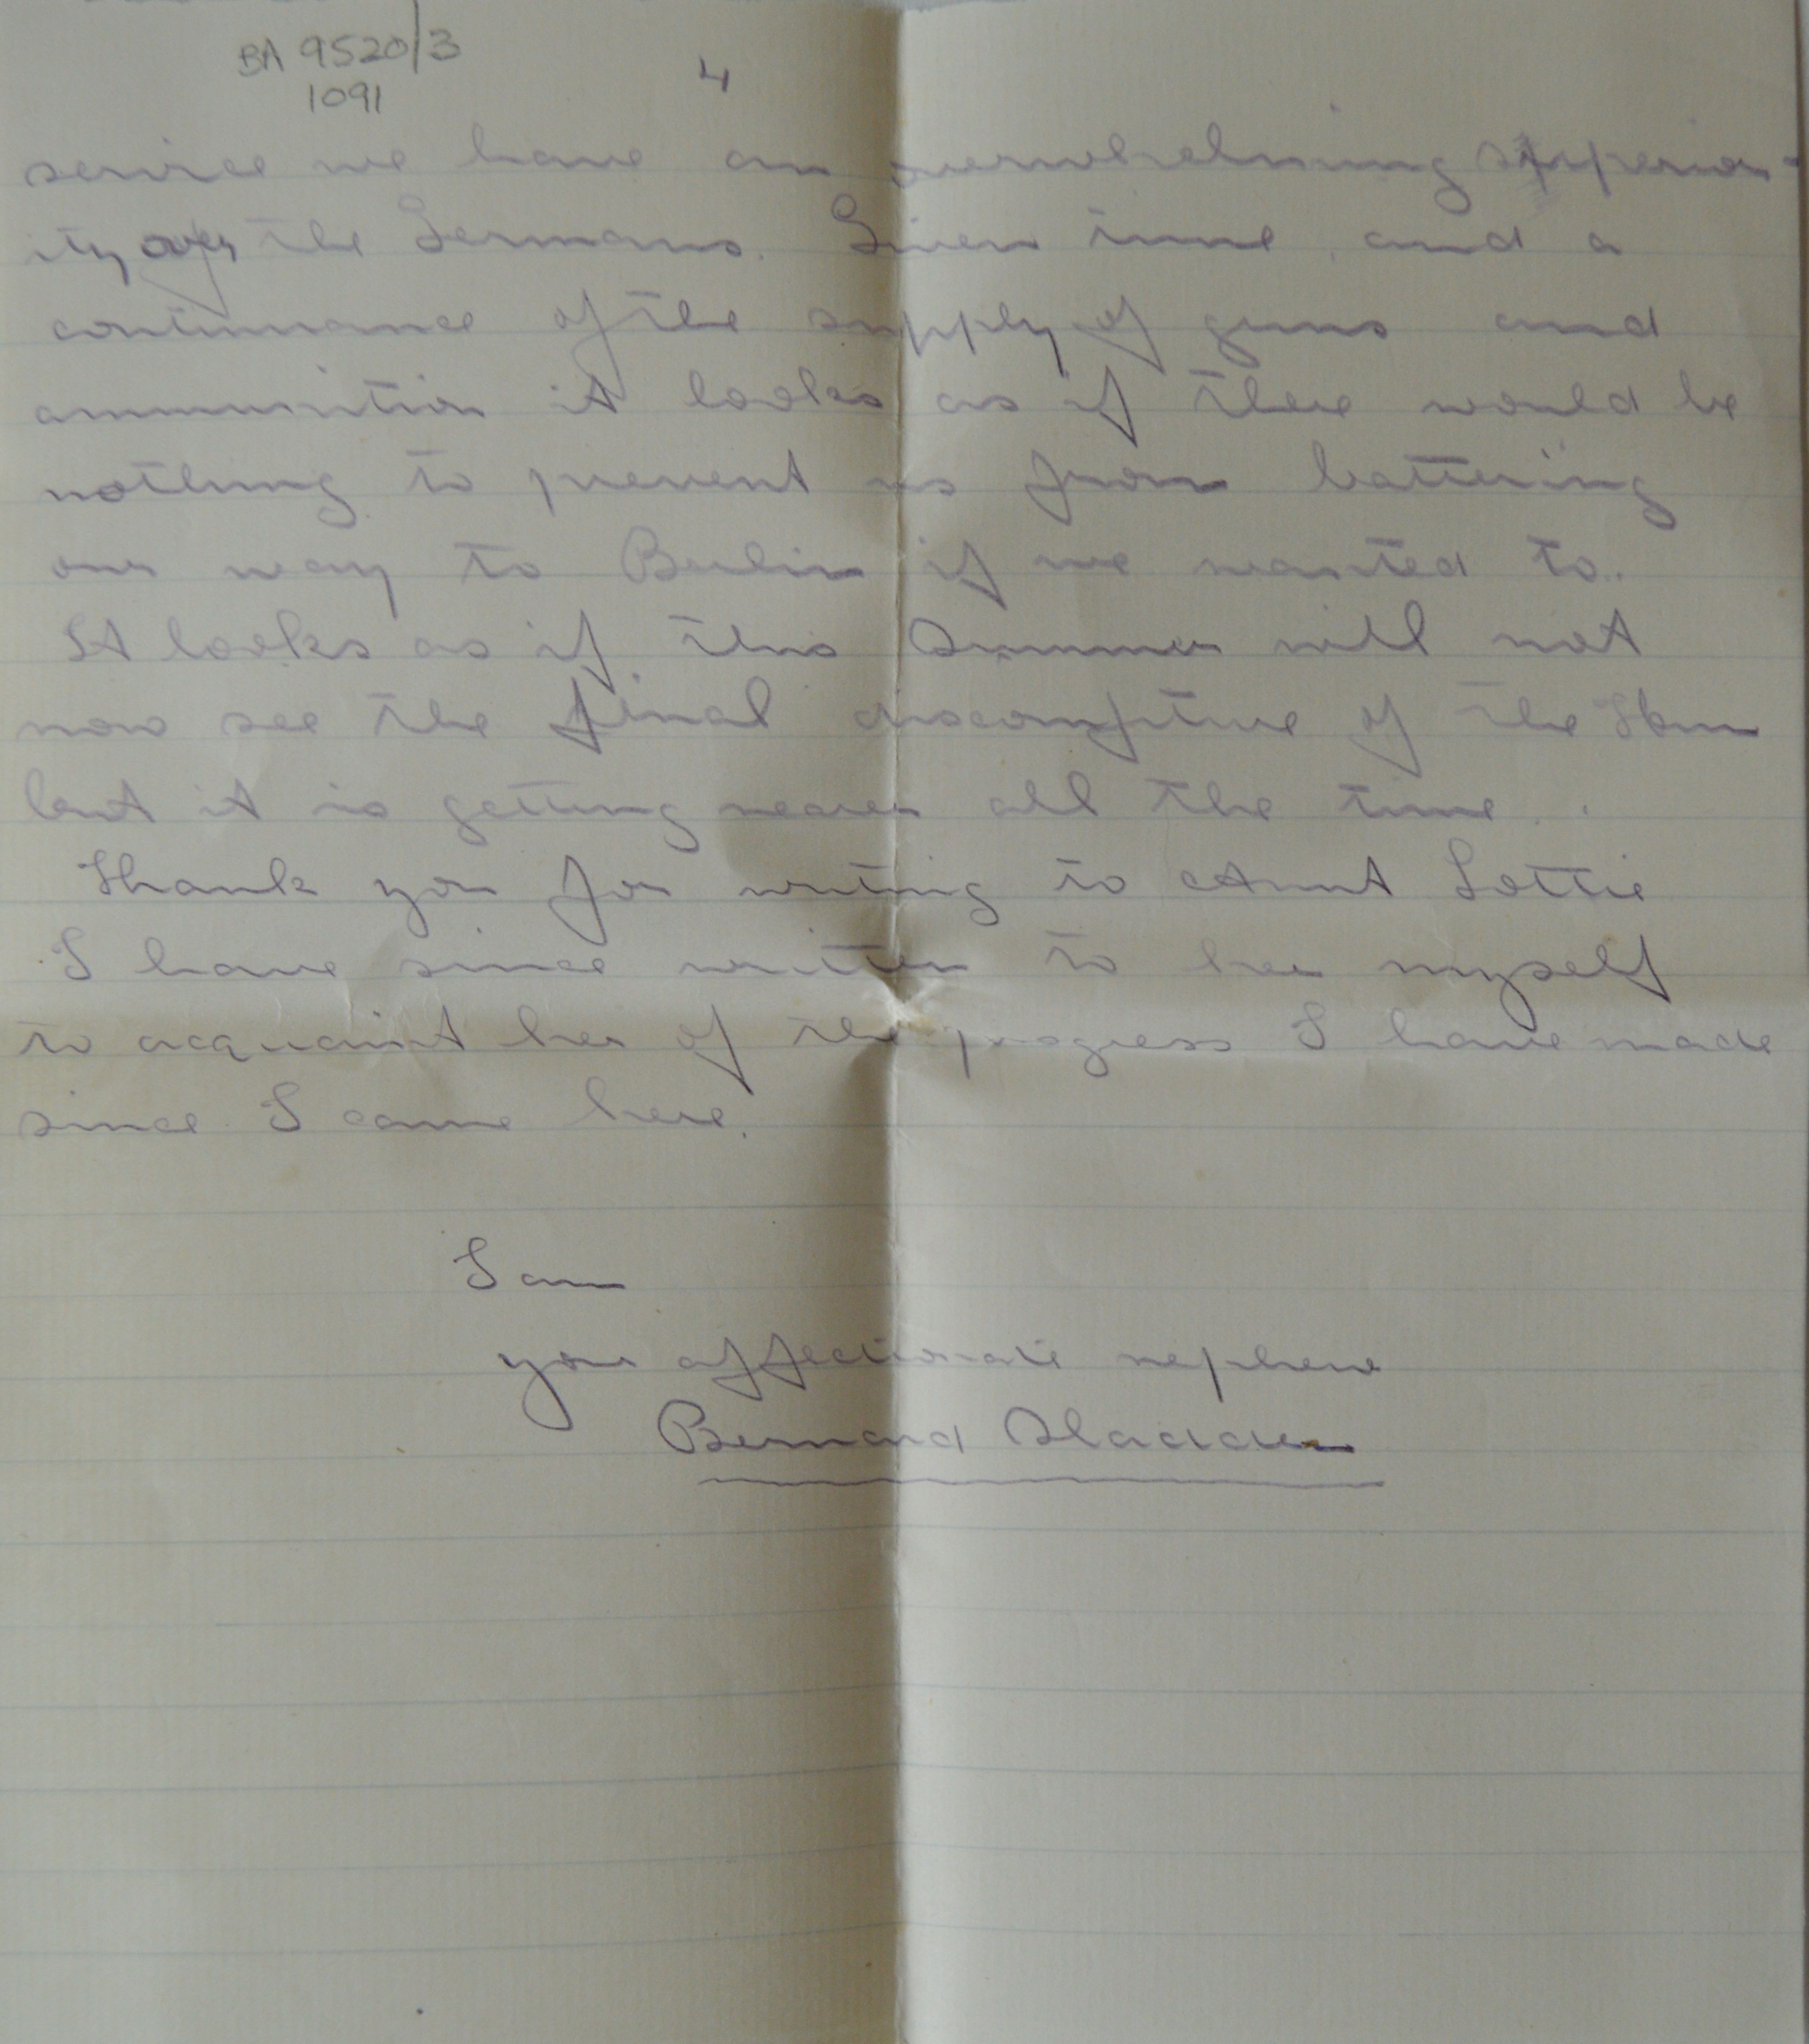 BA 9520/3
1091
4
service we have an overwhelming superior-
ity over the Germans. Given time, and a
continuance of the supply of guns and
ammunition it looks as if there would be
nothing to prevent us from battering
our way to Berlin if we wanted to.
It looks as if this Summer will not
now see the final discomfiture of the Hun
but it is getting nearer all the time.
Thank you for writing to Aunt Lottie
I have since written to her myself
to acquaint her of the progress I have made
since I came here.
I am
your affectionate nephew
Bernard Sladden